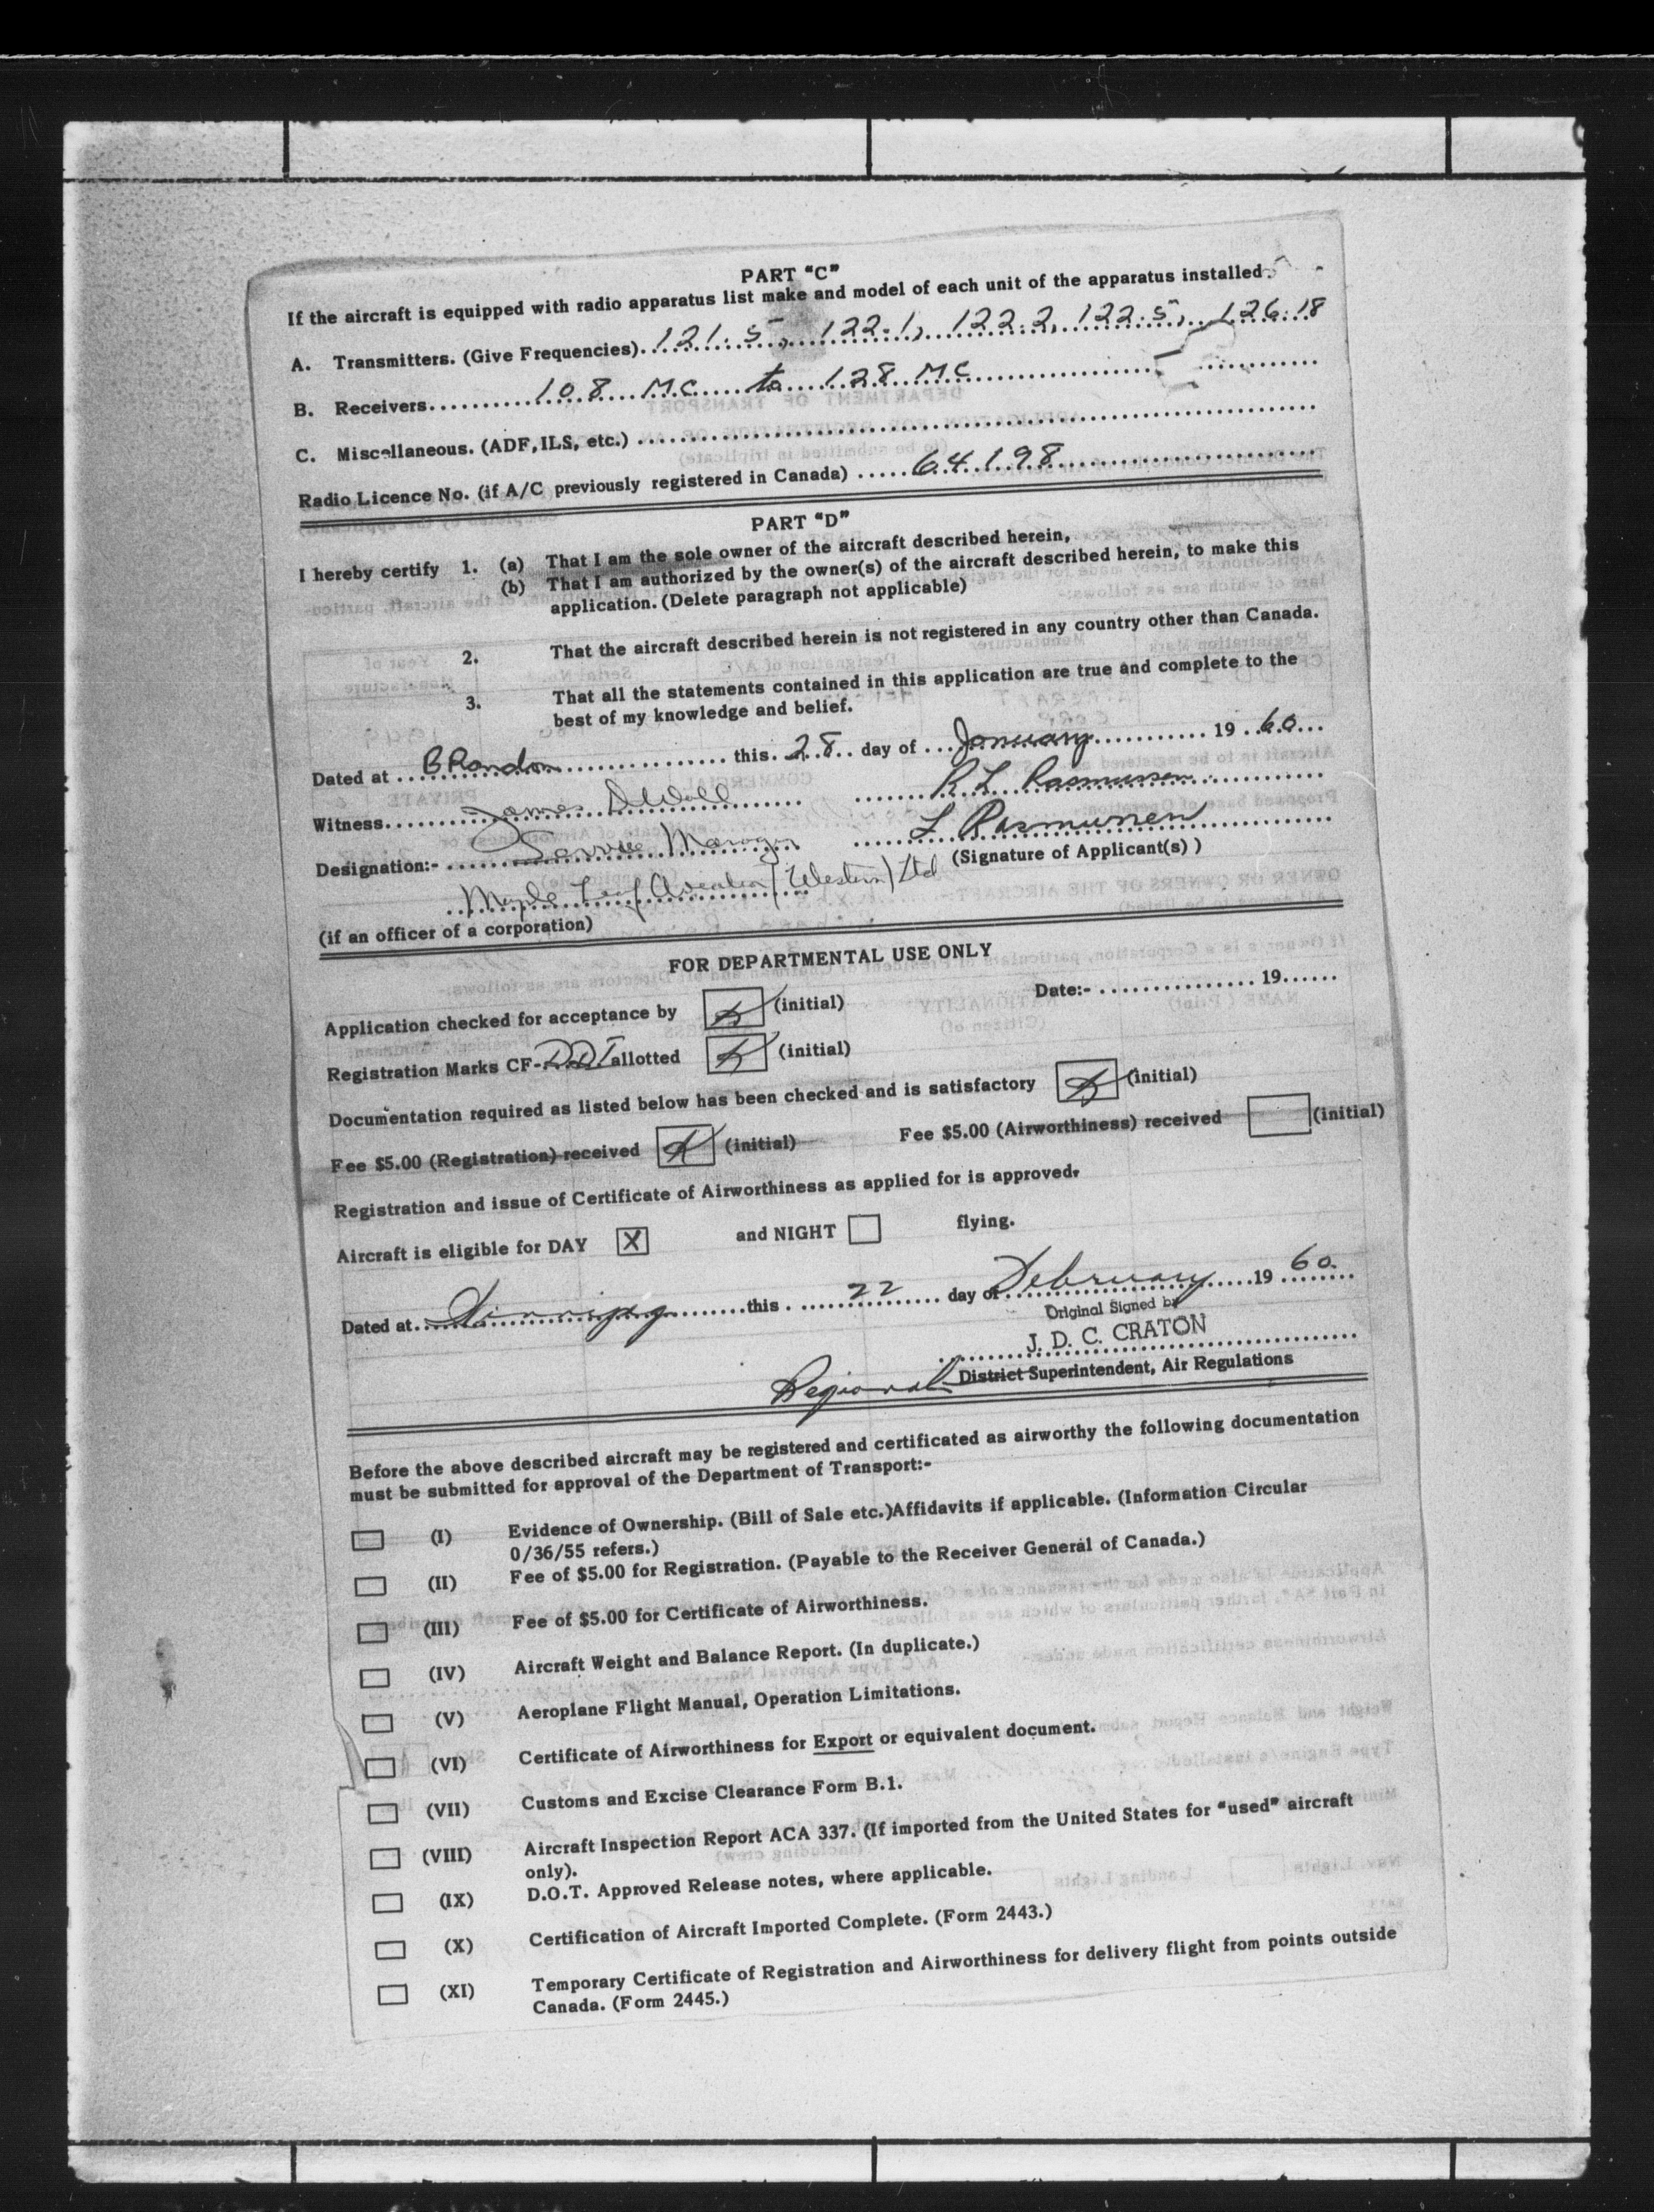 PART "C"
If the aircraft is equipped with radio apparatus list make and model of each unit of the apparatus installed.
A. Transmitters. (Give Frequencies) 121.5, 122.1, 122.2, 122.5, 126.18
B. Receivers 108 MC to 128 MC
C. Miscellaneous. (ADF, ILS, etc.)
Radio Licence No. (if A/C previously registered in Canada) 64198
PART "D"
I hereby certify 1. (a) That I am the sole owner of the aircraft described herein,
(b) That I am authorized by the owner(s) of the aircraft described herein, to make this
application. (Delete paragraph not applicable)
2. That the aircraft described herein is not registered in any country other than Canada.
3. That all the statements contained in this application are true and complete to the
best of my knowledge and belief.
Dated at Brandon this 28 day of January 19 60
Witness James R L Rasmussen
Designation:- Service Manager L Rasmussen
(Signature of Applicant(s) )
Maple Leaf Aviation (Western) Ltd
(if an officer of a corporation)
FOR DEPARTMENTAL USE ONLY
Date:- 19
Application checked for acceptance by (initial)
Registration Marks CF-DDI allotted (initial)
Documentation required as listed below has been checked and is satisfactory (initial)
Fee $5.00 (Registration) received (initial) Fee $5.00 (Airworthiness) received (initial)
Registration and issue of Certificate of Airworthiness as applied for is approved.
Aircraft is eligible for DAY X and NIGHT flying.
Dated at Winnipeg this 22 day of February 19 60
Original Signed by
J. D. C. CRATON
Regional District Superintendent, Air Regulations
Before the above described aircraft may be registered and certificated as airworthy the following documentation
must be submitted for approval of the Department of Transport:-
(I) Evidence of Ownership. (Bill of Sale etc.)Affidavits if applicable. (Information Circular
0/36/55 refers.)
(II) Fee of $5.00 for Registration. (Payable to the Receiver General of Canada.)
(III) Fee of $5.00 for Certificate of Airworthiness.
(IV) Aircraft Weight and Balance Report. (In duplicate.)
(V) Aeroplane Flight Manual, Operation Limitations.
(VI) Certificate of Airworthiness for Export or equivalent document.
(VII) Customs and Excise Clearance Form B.1.
(VIII) Aircraft Inspection Report ACA 337. (If imported from the United States for "used" aircraft
only).
(IX) D.O.T. Approved Release notes, where applicable.
(X) Certification of Aircraft Imported Complete. (Form 2443.)
(XI) Temporary Certificate of Registration and Airworthiness for delivery flight from points outside
Canada. (Form 2445.)